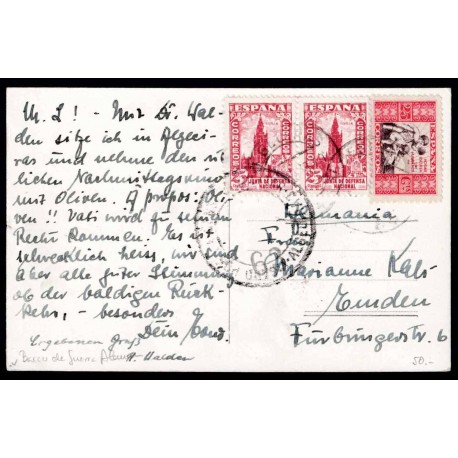 M. L! – Mit Dr. Wal-
den sitze ich in Algeci-
ras und nehme den üb-
lichen Nachmittags
mit Oliven. À propos: Oli-
ven!! Vati wird zu seinem
Recht kommen. Es ist
heiss, wir sind
aber alle guter Stimmung
ob der baldigen Rück-
kehr, – besonders
Dein
Ergebenen Gruß
Walden
Barco de Guerra
ESPAÑA
CORREOS
JUNTA DE DEFENSA
NACIONAL
ESPAÑA
CORREOS
JUNTA DE DEFENSA
NACIONAL
ESPAÑA
Alemania
Marianne
Emden
Fürbringerstr. 6
50.-